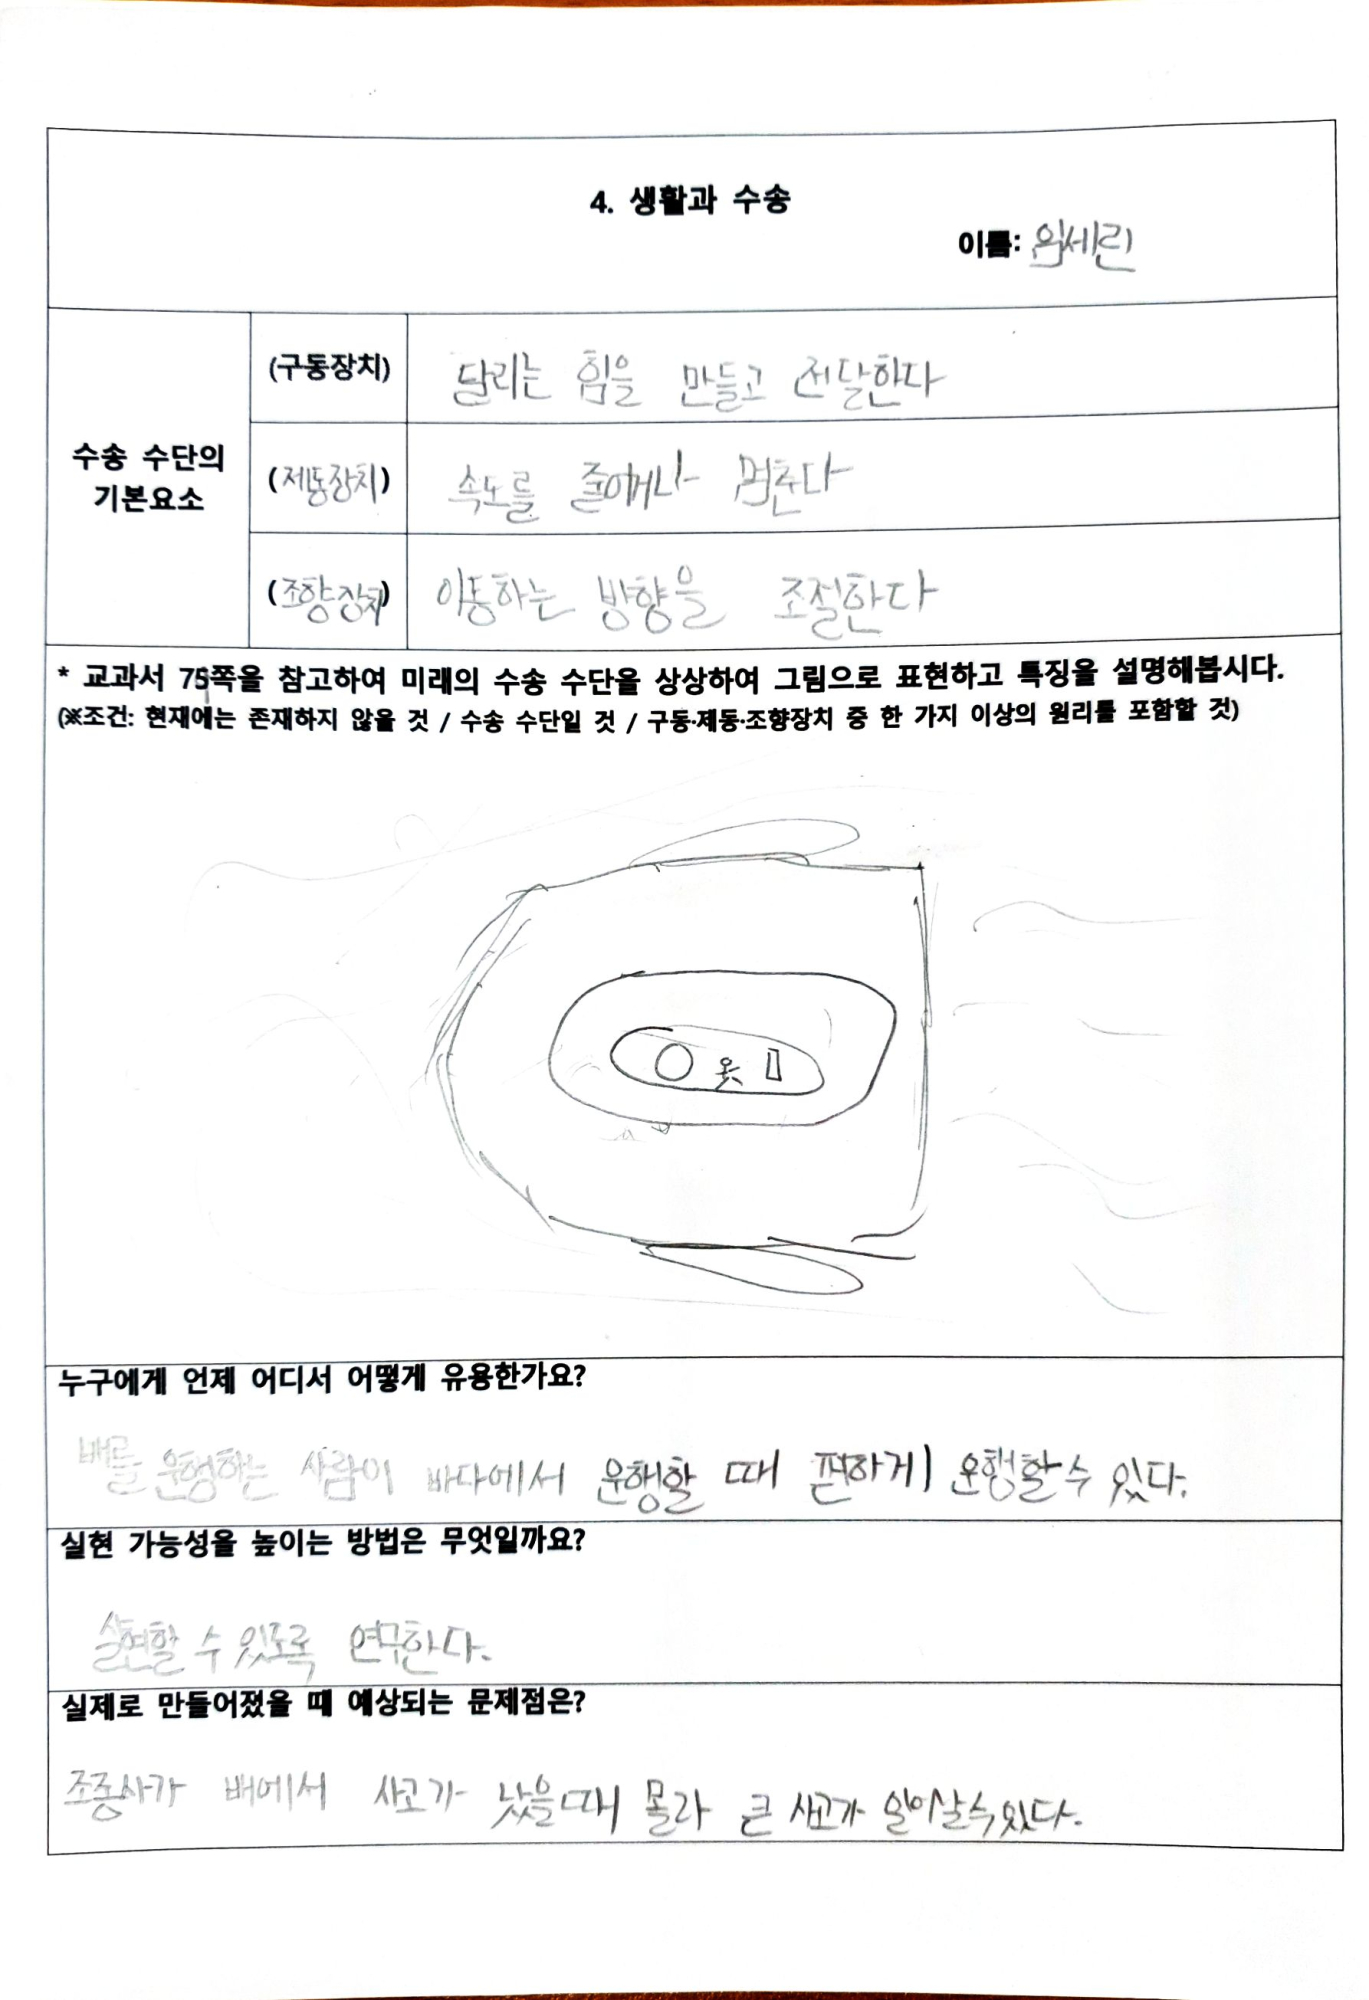 4. 생활과 수송
이름: 임세린
(구동장치) 달리는 힘을 만들고 전달한다
수송 수단의
기본요소
(제동장치) 속도를 줄이거나 멈춘다
(조향장치) 이동하는 방향을 조절한다
* 교과서 75쪽을 참고하여 미래의 수송 수단을 상상하여 그림으로 표현하고 특징을 설명해봅시다.
(※조건: 현재에는 존재하지 않을 것 / 수송 수단일 것 / 구동·제동·조향장치 중 한 가지 이상의 원리를 포함할 것)
누구에게 언제 어디서 어떻게 유용한가요?
배를 운행하는 사람이 바다에서 운행할 때 편하게 운행할 수 있다.
실현 가능성을 높이는 방법은 무엇일까요?
실현할 수 있도록 연구한다.
실제로 만들어졌을 때 예상되는 문제점은?
조종사가 배에서 사고가 났을때 몰라 큰 사고가 일어날수있다.